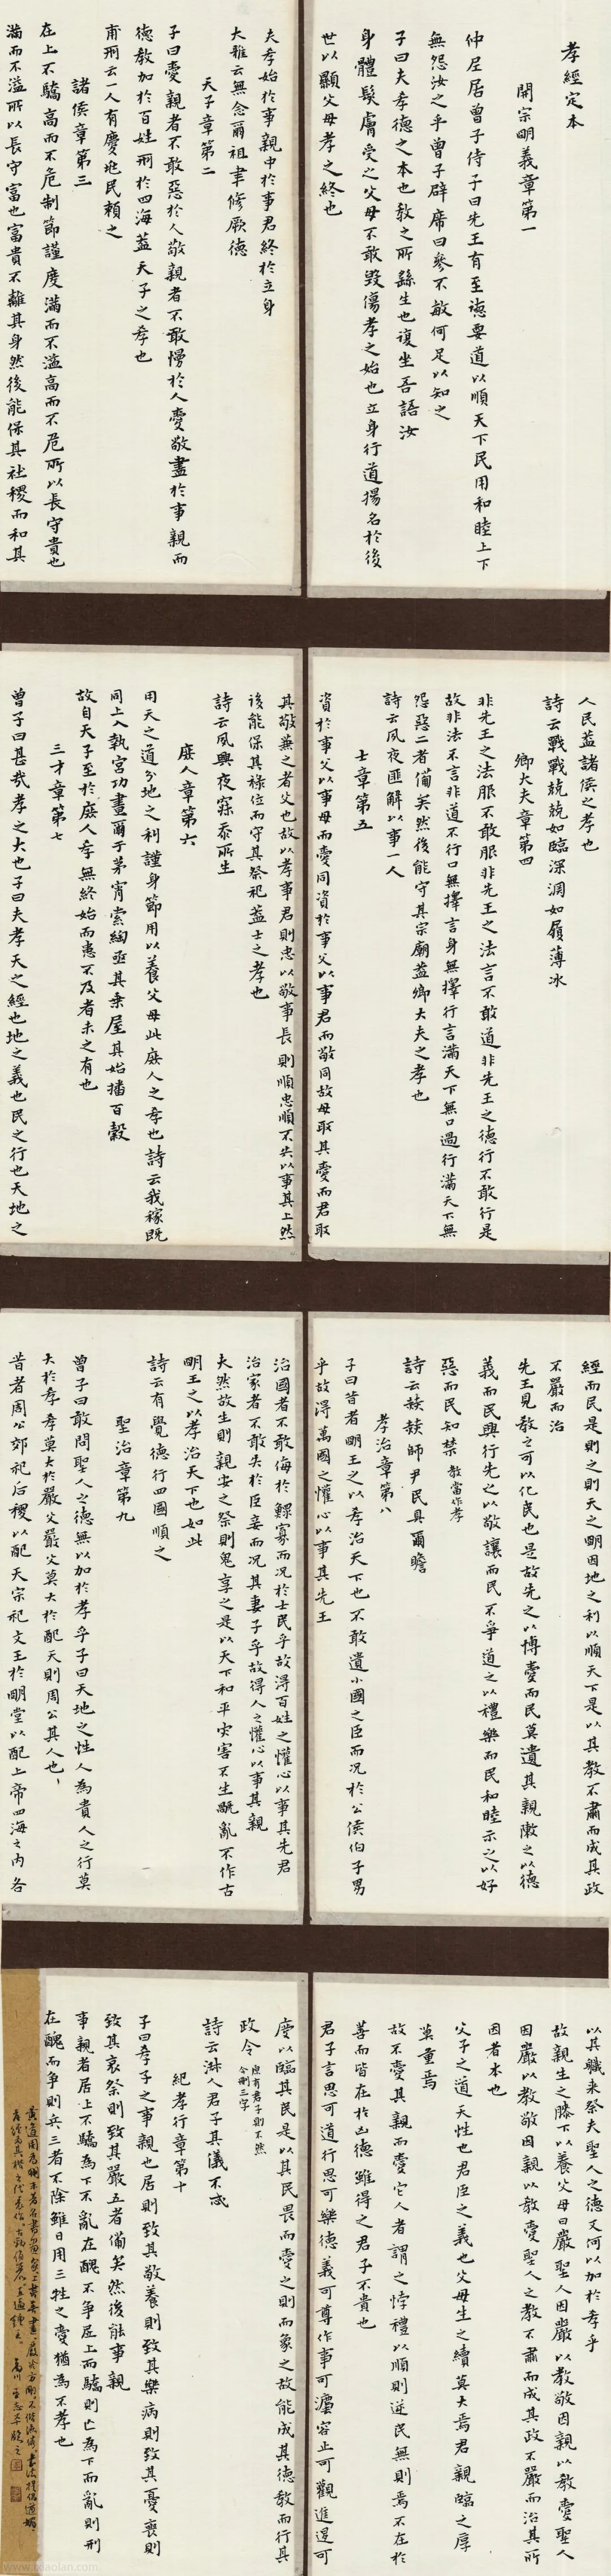 孝經定本
開宗明義章第一
仲尼居曾子侍子曰先王有至德要道以順天下民用和睦上下
無怨汝之乎曾子辟席曰參不敏何足以知之
子曰夫孝德之本也教之所繇生也復坐吾語汝
身體髮膚受之父母不敢毀傷孝之始也立身行道揚名於後
世以顯父母孝之終也
夫孝始於事親中於事君終於立身
大雅云無念爾祖聿修厥德
天子章第二
子曰愛親者不敢惡於人敬親者不敢慢於人愛敬盡於事親而
德教加於百姓刑於四海蓋天子之孝也
甫刑云一人有慶兆民賴之
諸侯章第三
在上不驕高而不危制節謹度滿而不溢高而不危所以長守貴也
滿而不溢所以長守富也富貴不離其身然後能保其社稷而和其
人民蓋諸侯之孝也
詩云戰戰兢兢如臨深淵如履薄冰
卿大夫章第四
非先王之法服不敢服非先王之法言不敢道非先王之德行不敢行是
故非法不言非道不行口無擇言身無擇行言滿天下無口過行滿天下無
怨惡三者備矣然後能守其宗廟蓋卿大夫之孝也
詩云夙夜匪解以事一人
士章第五
資於事父以事母而愛同資於事父以事君而敬同故母取其愛而君取
其敬兼之者父也故以孝事君則忠以敬事長則順忠順不失以事其上然
後能保其祿位而守其祭祀蓋士之孝也
詩云夙興夜寐忝所生
庶人章第六
用天之道分地之利謹身節用以養父母此庶人之孝也詩云我稼既
同上入執宮功晝爾于茅宵索綯亟其乘屋其始播百穀
故自天子至於庶人孝無終始而患不及者未之有也
三才章第七
曾子曰甚哉孝之大也子曰夫孝天之經也地之義也民之行也天地之
經而民是則之則天之明因地之利以順天下是以其教不肅而成其政
不嚴而治
先王見教之可以化民也是故先之以博愛而民莫遺其親敶之以德
義而民興行先之以敬讓而民不爭道之以禮樂而民和睦示之以好
惡而民知禁 教當作孝
詩云赫赫師尹民具爾瞻
孝治章第八
子曰昔者明王之以孝治天下也不敢遺小國之臣而况於公侯伯子男
乎故得萬國之懽心以事其先王
治國者不敢侮於鰥寡而况於士民乎故得百姓之懽心以事其先君
治家者不敢失於臣妾而况其妻子乎故得人之懽心以事其親
夫然故生則親安之祭則鬼享之是以天下和平災害不生旤亂不作古
明王之以孝治天下也如此
詩云有覺德行四國順之
聖治章第九
曾子曰敢問聖人之德無以加於孝乎子曰天地之性人為貴人之行莫
大於孝孝莫大於嚴父嚴父莫大於配天則周公其人也
昔者周公郊祀后稷以配天宗祀文王於明堂以配上帝四海之內各
以其職來祭夫聖人之德又何以加於孝乎
故親生之膝下以養父母日嚴聖人因嚴以教敬因親以教愛聖人
因嚴以教敬因親以教愛聖人之教不肅而成其政不嚴而治其所
因者本也
父子之道天性也君臣之義也父母生之續莫大焉君親臨之厚
莫重焉
故不愛其親而愛它人者謂之悖禮以順則逆民無則焉不在於
善而皆在於凶德雖得之君子不貴也
君子言思可道行思可樂德義可尊作事可灋容止可觀進退可
度以臨其民是以其民畏而愛之則而象之故能成其德教而行其
政令 應有君子則不然
今刪三字
詩云淑人君子其儀不忒
紀孝行章第十
子曰孝子之事親也居則致其敬養則致其樂病則致其憂喪則
致其哀祭則致其嚴五者備矣然後能事親
事親者居上不驕為下不亂在醜不爭居上而驕則亡為下而亂則刑
在醜而爭則兵三者不除雖日用三牲之養猶為不孝也